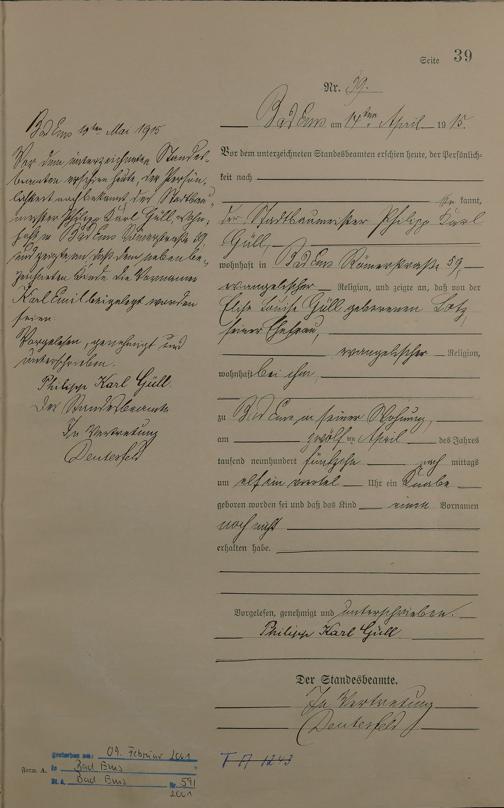 Seite 39
Nr. 39.
Bad Ems am 14ten April 1915.
Vor dem unterzeichneten Standesbeamten erschien heute, der Persönlich-
keit nach
be kannt,
der Stadtbaumeister Philipp Karl
Güll,
wohnhaft in Bad Ems Römerstraße 59,
evangelischer Religion, und zeigte an, daß von der
Elise Louise Güll geborenen Lotz,
seiner Ehefrau,
evangelischer Religion,
wohnhaft bei ihm,
zu Bad Ems in seiner Wohnung,
am April des Jahres
tausend neunhundert fünfzehn nach mittags
um elf ein viertel Uhr ein Knabe
geboren worden sei und daß das Kind einen Vornamen
noch nicht
erhalten habe.
Vorgelesen, genehmigt und unterschrieben.
Philipp Karl Güll
Der Standesbeamte.
In Vertretung
Bad Ems 10ten Mai 1915
Vor dem unterzeichneten Standes-
beamten erschien heute, der Persön-
lichkeit nach bekannt, der Stadtbau-
meister Philipp Karl Güll, wohn-
haft in Bad Ems Römerstraße 59,
und zeigte an, daß dem neben be-
zeichneten Kinde die Vornamen
Karl Emil beigelegt worden
seien.
Vorgelesen, genehmigt und
unterschrieben.
Philipp Karl Güll.
Der Standesbeamte
In Vertretung
Form. A.
gestorben am: 09. Februar 2001
in Bad Ems
St. A. Bad Ems Nr. 591
2001